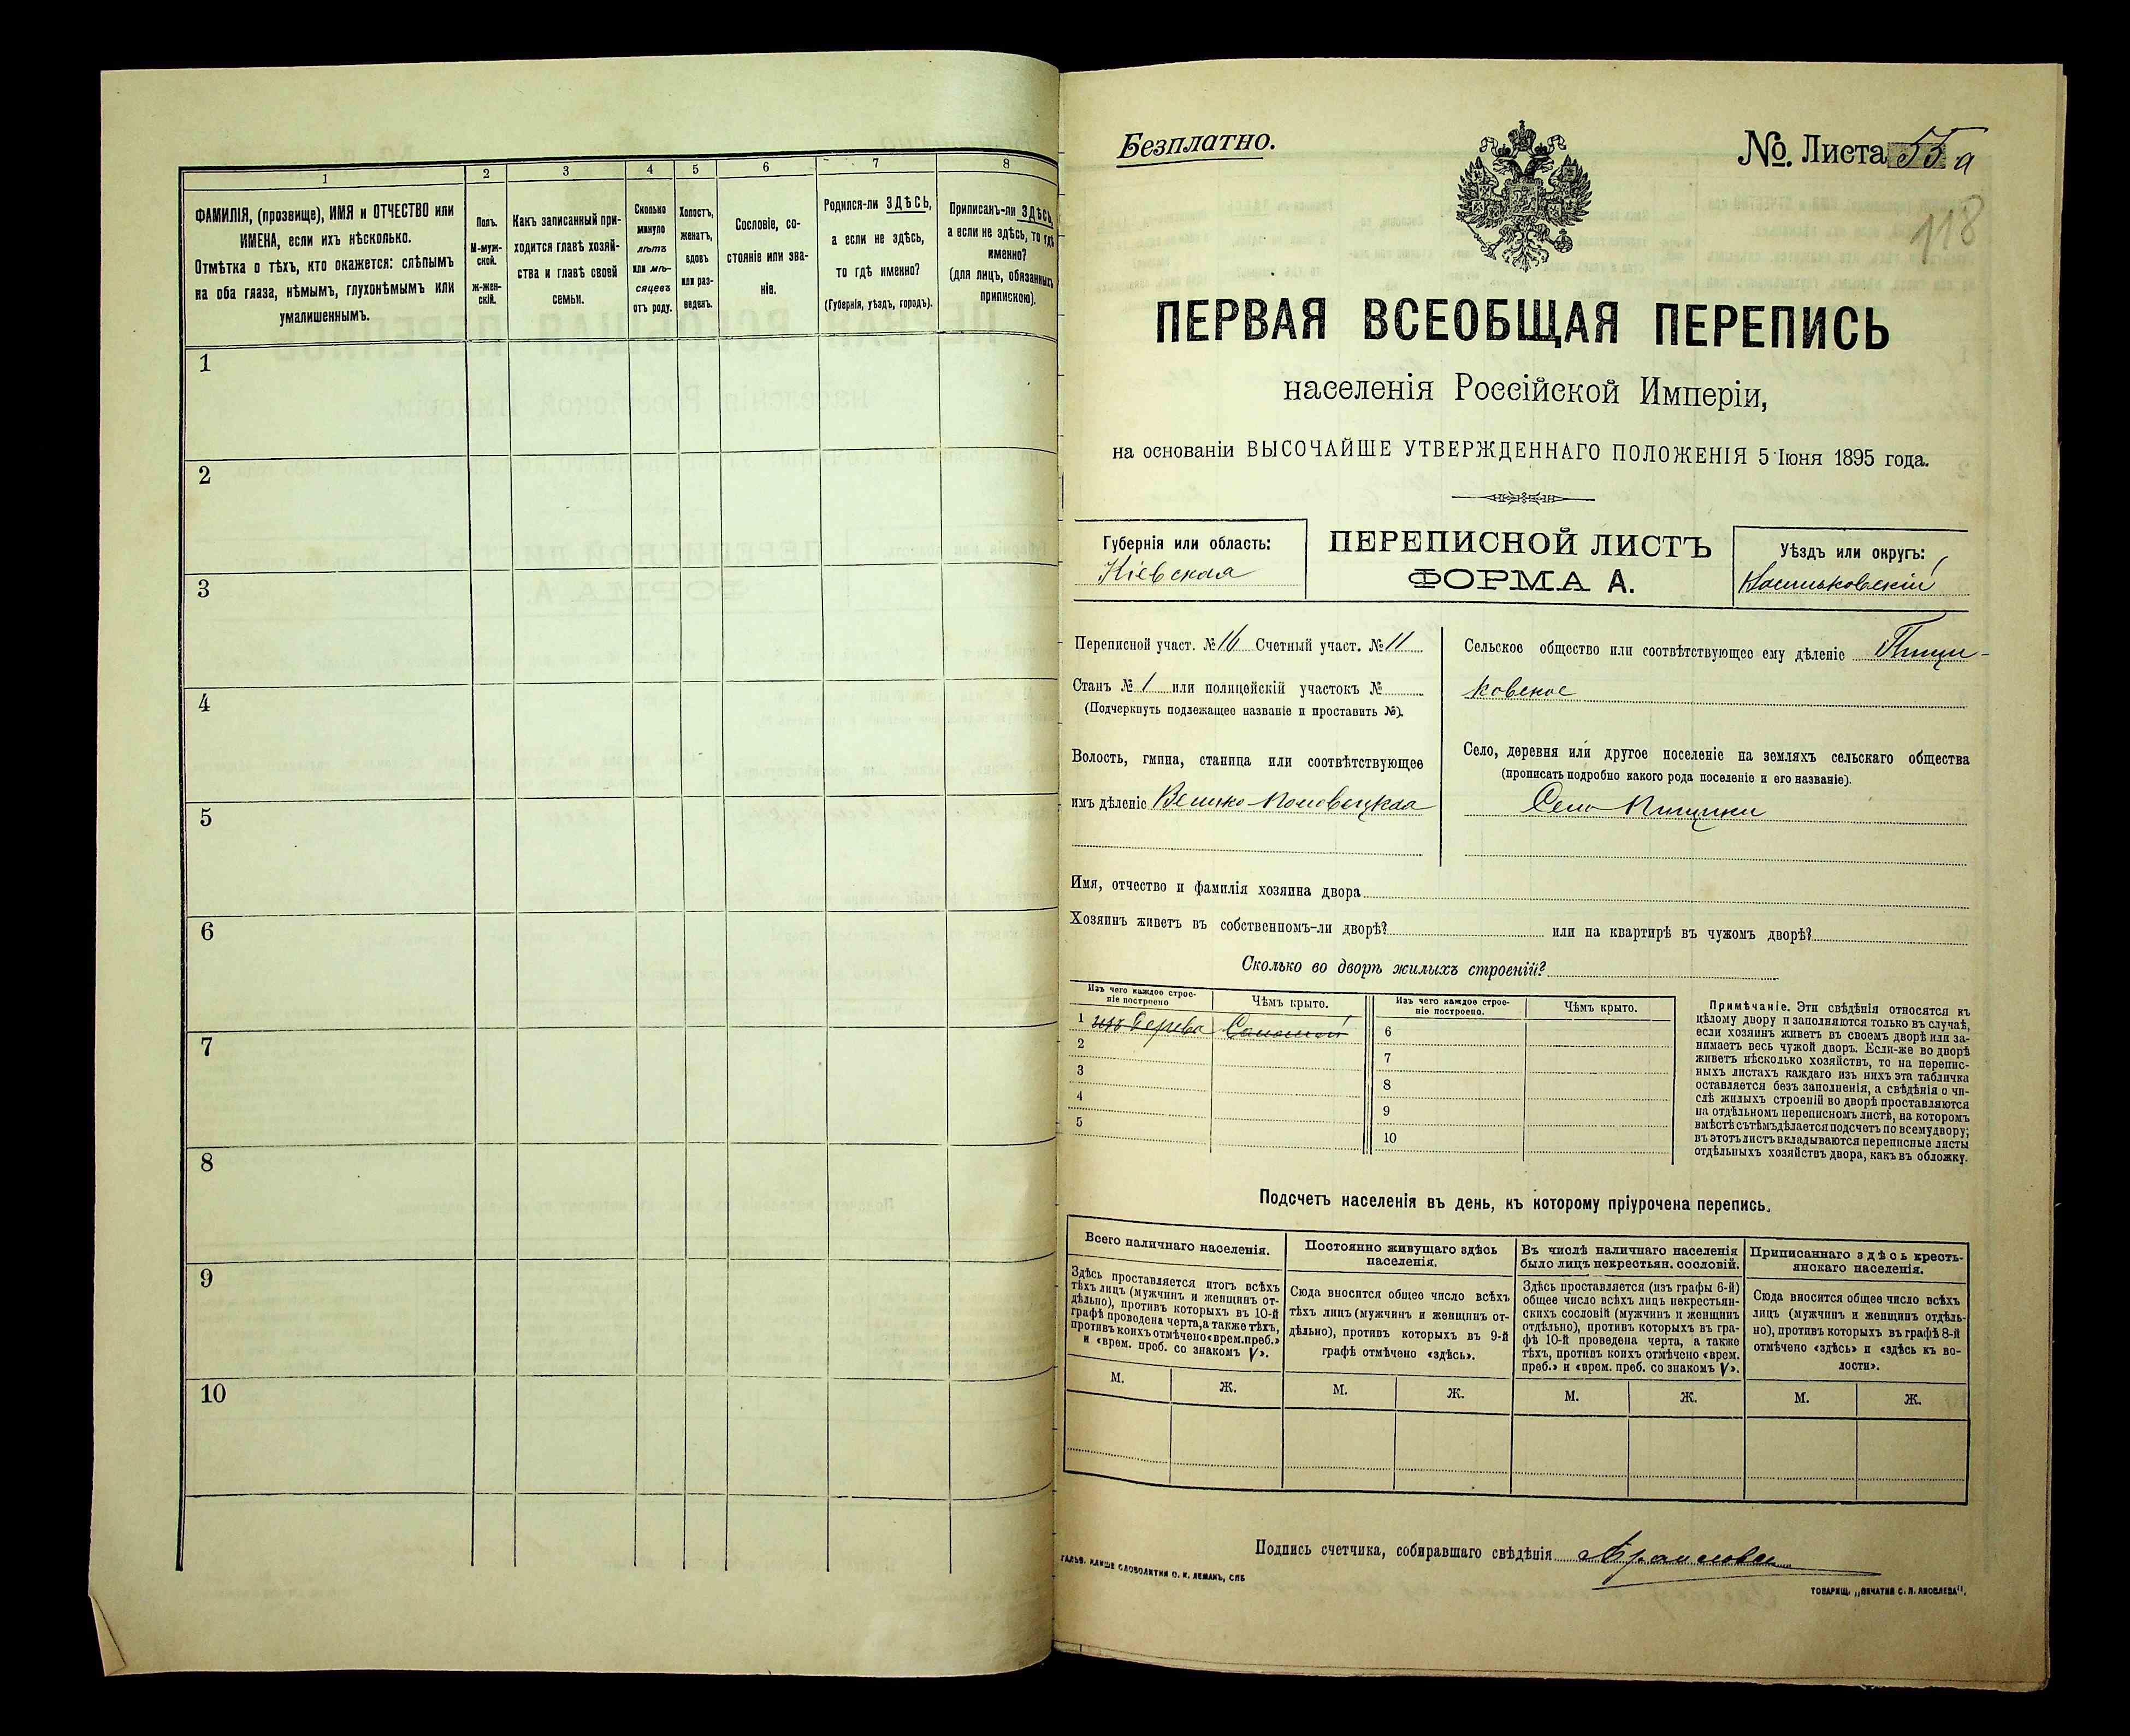 1
2
3
4
5
6
7
8
ФАМИЛІЯ, (прозвище), ИМЯ и ОТЧЕСТВО или
ИМЕНА, если ихъ нѣсколько.
Отмѣтка о тѣхъ, кто окажется: слѣпымъ
на оба глаза, нѣмымъ, глухонѣмымъ или
умалишеннымъ.
Полъ.
М-муж-
ской.
Ж-жен-
скій.
Какъ записанный при-
ходится главѣ хозяй-
ства и главѣ своей
семьи.
Сколько
минуло
лѣтъ
или мѣ-
сяцевъ
отъ роду.
Холостъ,
женатъ,
вдовъ
или раз-
веденъ.
Сословіе, со-
стояніе или зва-
ніе.
Родился-ли ЗДѢСЬ,
а если не здѣсь,
то гдѣ именно?
(Губернія, уѣздъ, городъ).
Приписанъ-ли ЗДѢСЬ,
а если не здѣсь, то гдѣ
именно?
(для лицъ, обязанныхъ
припискою).
1
2
3
4
5
6
7
8
9
10
Безплатно.
№. Листа 55 а
118
ПЕРВАЯ ВСЕОБЩАЯ ПЕРЕПИСЬ
населенія Россійской Имперіи,
на основаніи ВЫСОЧАЙШЕ УТВЕРЖДЕННАГО ПОЛОЖЕНІЯ 5 Іюня 1895 года.
Губернія или область:
Кіевская
ПЕРЕПИСНОЙ ЛИСТЪ
ФОРМА А.
Уѣздъ или округъ:
Васильковскій
Переписной участ. № 16 Счетный участ. № 11
Станъ № 1 или полицейскій участокъ №
(Подчеркнуть подлежащее названіе и проставить №).
Волость, гмина, станица или соотвѣтствующее
имъ дѣленіе Велико-Половецкая
Сельское общество или соотвѣтствующее ему дѣленіе Пищи-
ковское
Село, деревня или другое поселеніе на земляхъ сельскаго общества
(прописать подробно какого рода поселеніе и его названіе).
Село Пищики
Имя, отчество и фамилія хозяина двора
Хозяинъ живетъ въ собственномъ-ли дворѣ? или на квартирѣ въ чужомъ дворѣ?
Сколько во дворѣ жилыхъ строеній?
Изъ чего каждое строе-
ніе построено
Чѣмъ крыто.
Изъ чего каждое строе-
ніе построено.
Чѣмъ крыто.
1 изъ дерева Соломой
2
3
4
5
6
7
8
9
10
Примѣчаніе. Эти свѣдѣнія относятся къ
цѣлому двору и заполняются только въ случаѣ,
если хозяинъ живетъ въ своемъ дворѣ или за-
нимаетъ весь чужой дворъ. Если-же во дворѣ
живетъ нѣсколько хозяйствъ, то на перепис-
ныхъ листахъ каждаго изъ нихъ эта табличка
оставляется безъ заполненія, а свѣдѣнія о чи-
слѣ жилыхъ строеній во дворѣ проставляются
на отдѣльномъ переписномъ листѣ, на которомъ
вмѣстѣ съ тѣмъ дѣлается подсчетъ по всему двору;
въ этотъ листъ вкладываются переписные листы
отдѣльныхъ хозяйствъ двора, какъ въ обложку.
Подсчетъ населенія въ день, къ которому пріурочена перепись.
Всего наличнаго населенія.
Здѣсь проставляется итогъ всѣхъ
тѣхъ лицъ (мужчинъ и женщинъ от-
дѣльно), противъ которыхъ въ 10-й
графѣ проведена черта, а также тѣхъ,
противъ коихъ отмѣчено «врем. преб.»
и «врем. проб. со знакомъ V».
Постоянно живущаго здѣсь
населенія.
Сюда вносится общее число всѣхъ
тѣхъ лицъ (мужчинъ и женщинъ от-
дѣльно), противъ которыхъ въ 9-й
графѣ отмѣчено «здѣсь».
Въ числѣ наличнаго населенія
было лицъ некрестьян. сословій.
Здѣсь проставляется (изъ графы 6-й)
общее число всѣхъ лицъ некрестьян-
скихъ сословій (мужчинъ и женщинъ
отдѣльно), противъ которыхъ въ гра-
фѣ 10-й проведена черта, а также
тѣхъ, противъ коихъ отмѣчено «врем.
преб.» и «врем. преб. со знакомъ V».
Приписаннаго здѣсь кресть-
янскаго населенія.
Сюда вносится общее число всѣхъ
лицъ (мужчинъ и женщинъ отдѣль-
но), противъ которыхъ въ графѣ 8-й
отмѣчено «здѣсь» и «здѣсь къ во-
лости».
М. Ж. М. Ж. М. Ж. М. Ж.
Подпись счетчика, собиравшаго свѣдѣнія
ГАЛЬВ. КЛИШЕ СЛОВОЛИТНИ О. И. ЛЕМАНЪ, СПБ
ТОВАРИЩ. „ПЕЧАТНЯ С. П. ЯКОВЛЕВА".